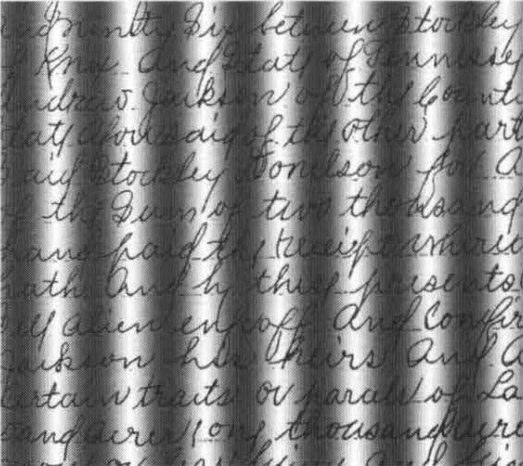 and Ninety Six between Stockley
of Knox and State of Tennessee
Andrew Jackson of the County
State aforesaid of the other part
said Stockley Donelson for
of the Sum of two thousand
hand paid the receipt where
hath And by these presents
sell alien enfoff And Confir
Jackson his heirs And A
Certain traits or parcels of La
sand acres one thousand acre